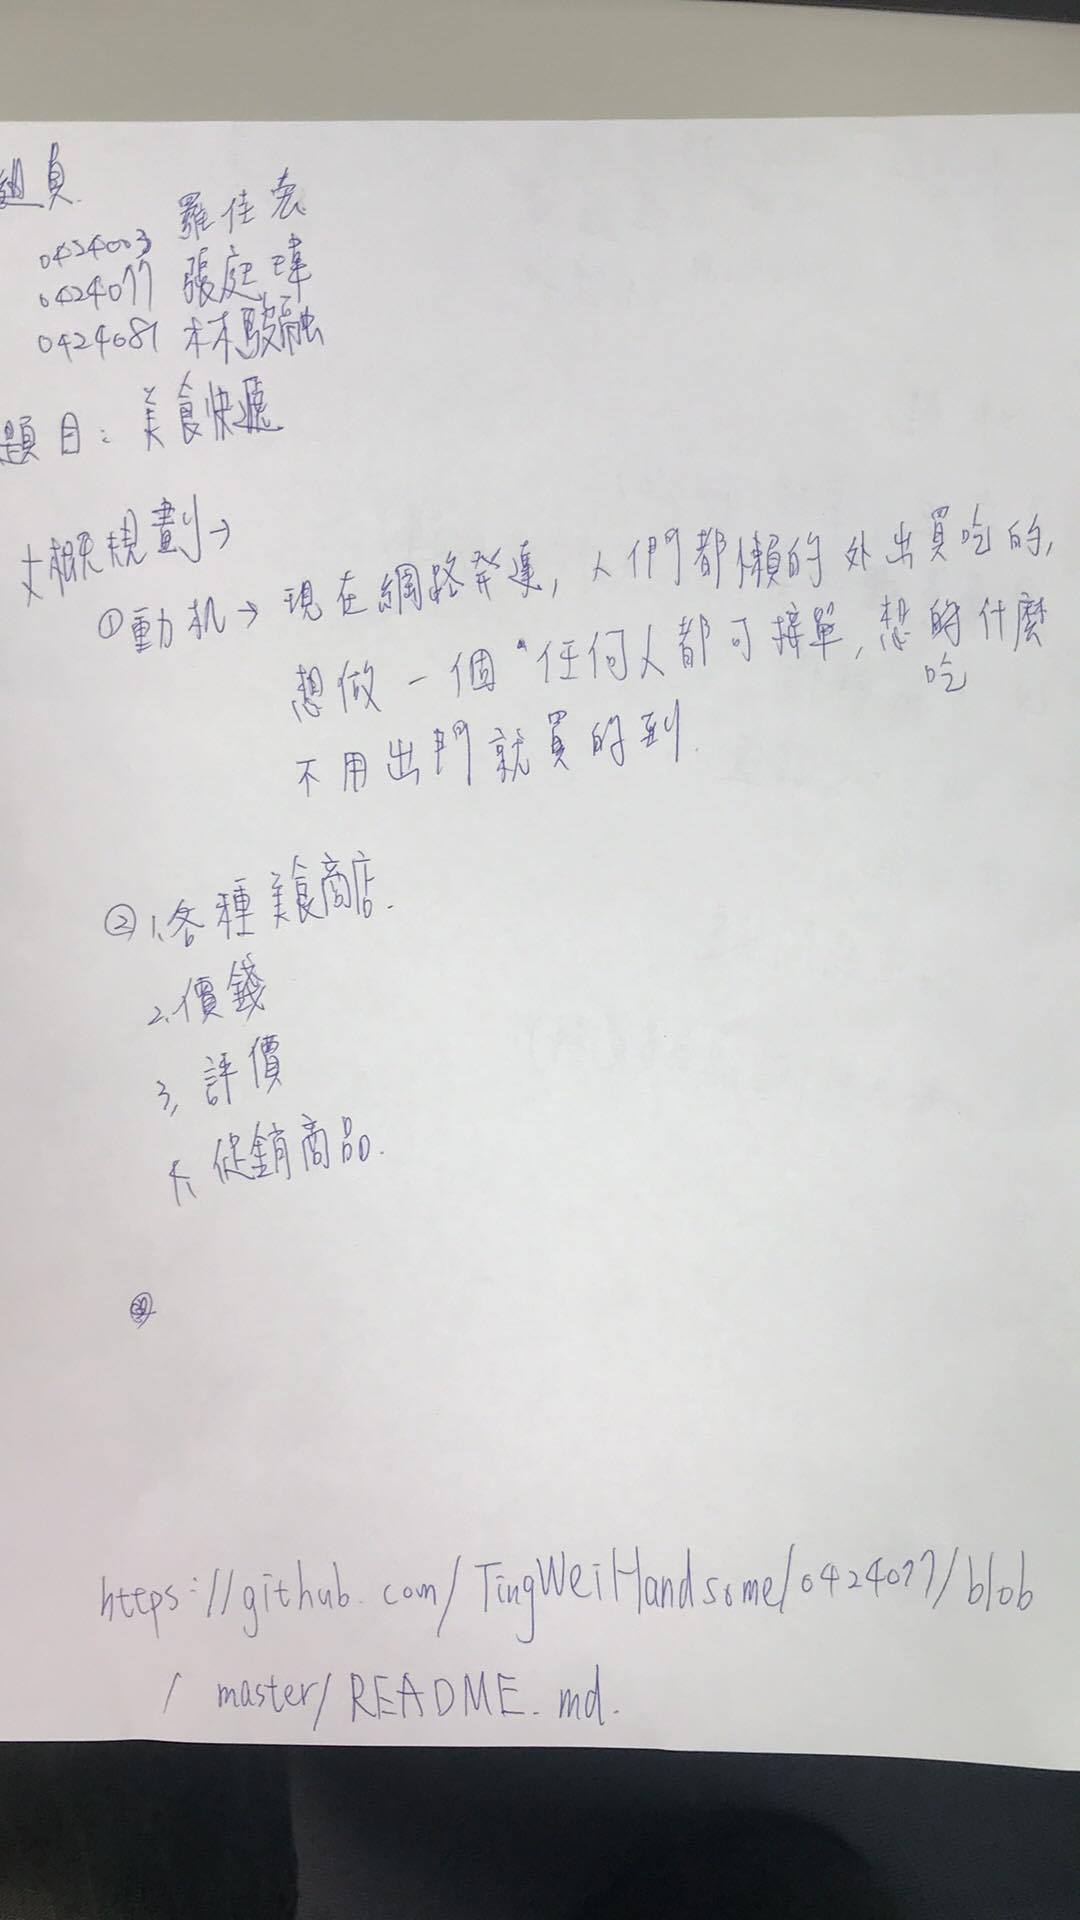 組員
0424003 羅佳宏
0424077 張庭瑋
0424081 林駿融
題目：美食快遞
大概規劃→
①動机→ 現在網路発達, 人們都懶的外出買吃的,
想做一個"任何人都可接單, 想吃的什麼
不用出門就買的到.
② 1.各種美食商店.
2.價錢
3.評價
4.促銷商品.
https://github.com/TingWeiHandsome/0424077/blob
/master/README.md.